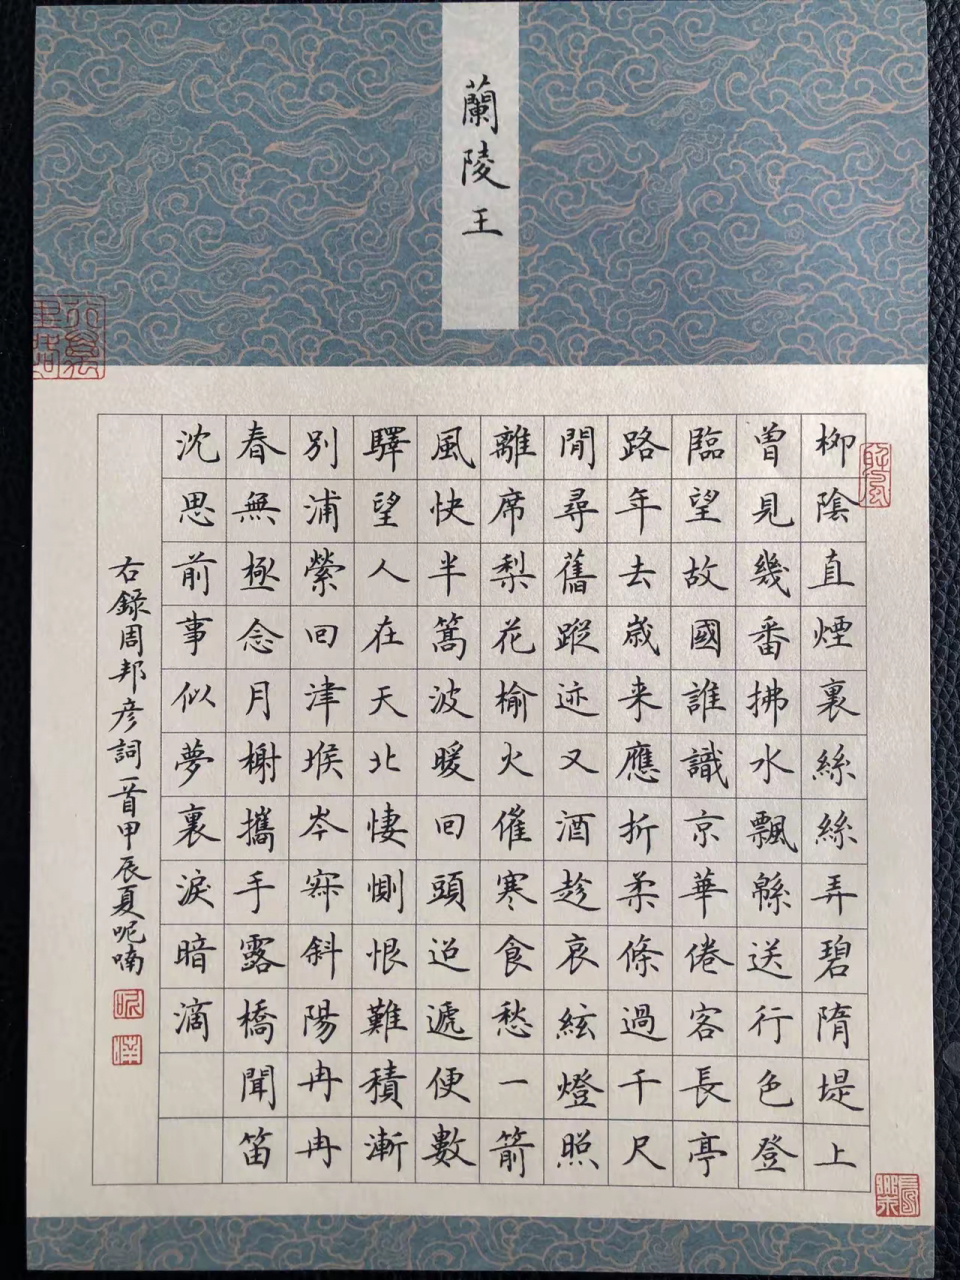 蘭陵王
柳陰直煙裏絲絲弄碧隋堤上
曾見幾番拂水飄緜送行色登
臨望故國誰識京華倦客長亭
路年去歳来應折柔條過千尺
閒尋舊蹤迹又酒趁哀絃燈照
離席梨花榆火催寒食愁一箭
風快半篙波暖回頭迢遞便數
驛望人在天北悽惻恨難積漸
別浦縈回津堠岑寀斜陽冉冉
春無極念月榭攜手露橋聞笛
沈思前事似夢裏淚暗滴
右錄周邦彦詞一首甲辰夏呢喃
呢
喃